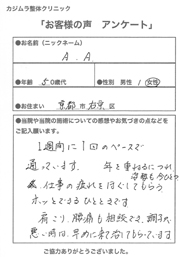 カジムラ整体クリニック
「お客様の声　アンケート」
●お名前(ニックネーム)
A.A
●年齢　50歳代
●性別　男性 / 女性
●お住まい　京都市右京区
●当院や当院の施術についての感想やお気づきの点などを
ご記入願います。
1週間に1回のペースで
通っています。年を重ねるにつれ
仕事の疲れをほぐしてもらう
ホッとできるひとときです
肩こり、腰痛も相談でき、調子の
悪い時は、早めに来て治してもらってます
ご協力ありがとうございました。